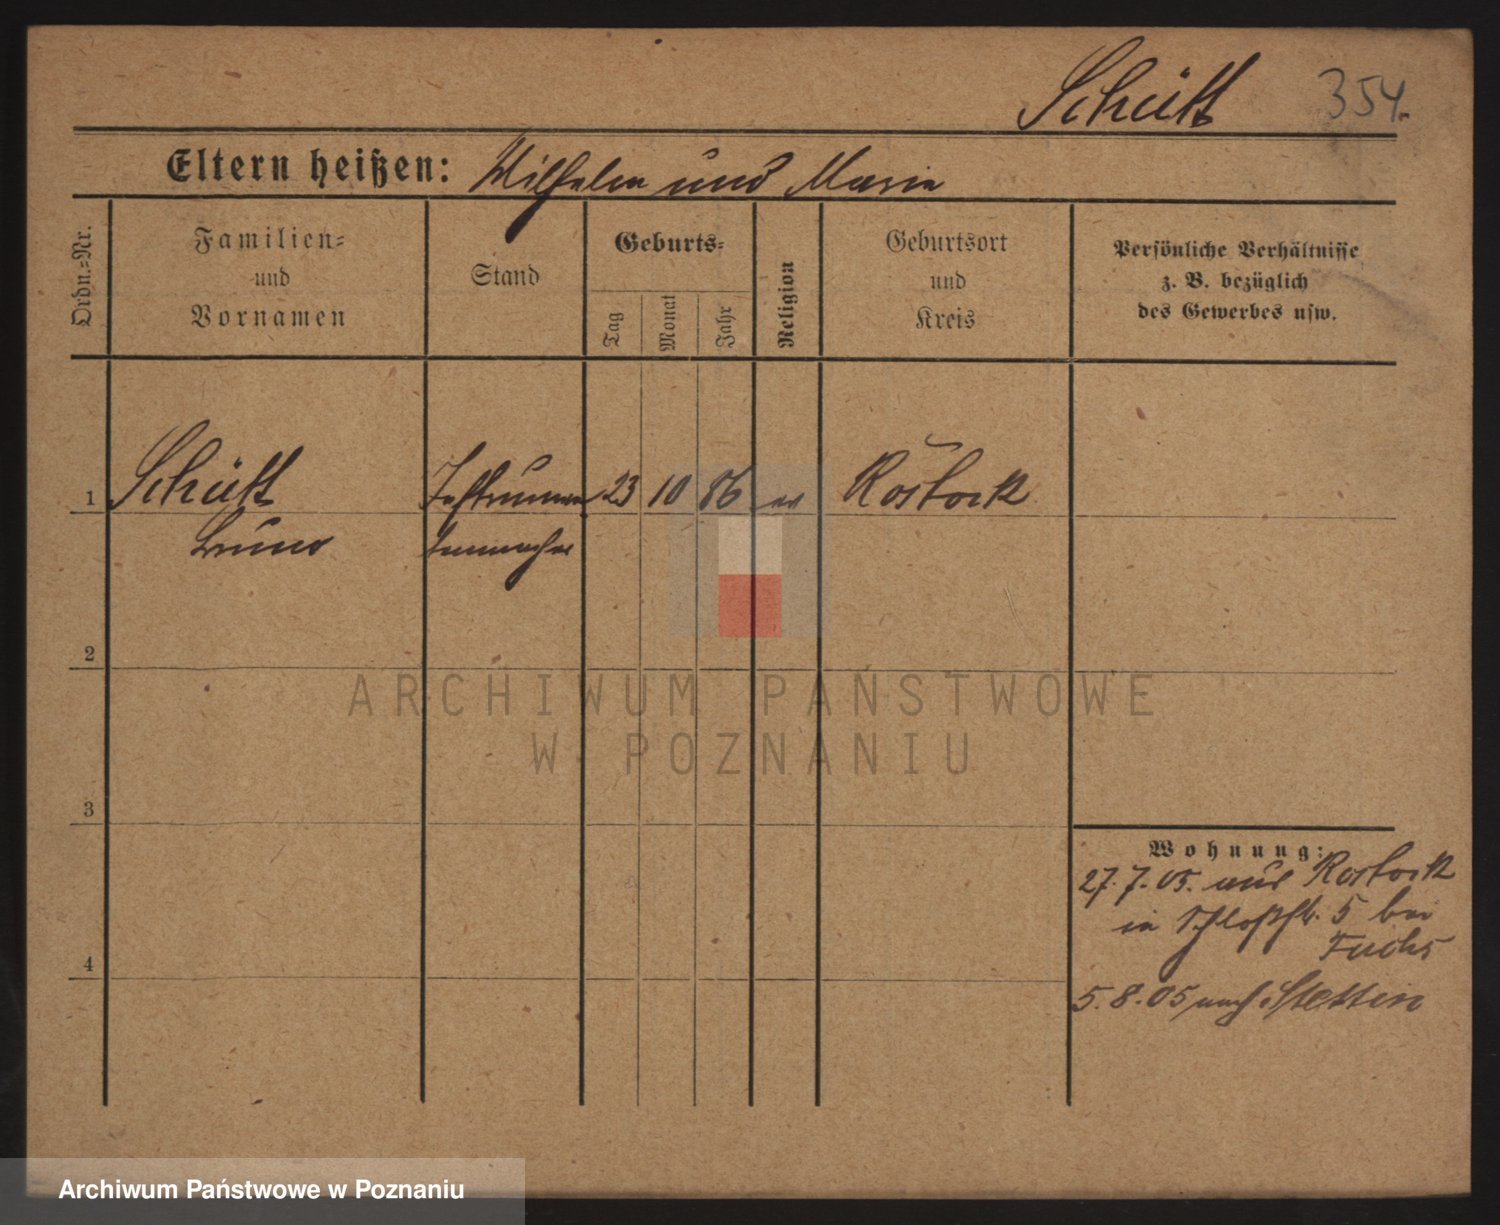 Schütt 354.
Eltern heißen: Wilhelm und Marie
Ordn.-Nr.
Familien-
und
Vornamen
Stand
Geburts-
Tag
Monat
Jahr
Religion
Geburtsort
und
Kreis
Persönliche Verhältnisse
z. B. bezüglich
des Gewerbes usw.
1 Schütt Instrumen 23 10 86 ev Rostock
Bruno tenmacher
2
ARCHIWUM PAŃSTWOWE
W POZNANIU
3
Wohnung:
27.7.05. aus Rostock
in Schloßstr. 5 bei
Fuchs
4
5.8.05 nach Stettin
Archiwum Państwowe w Poznaniu